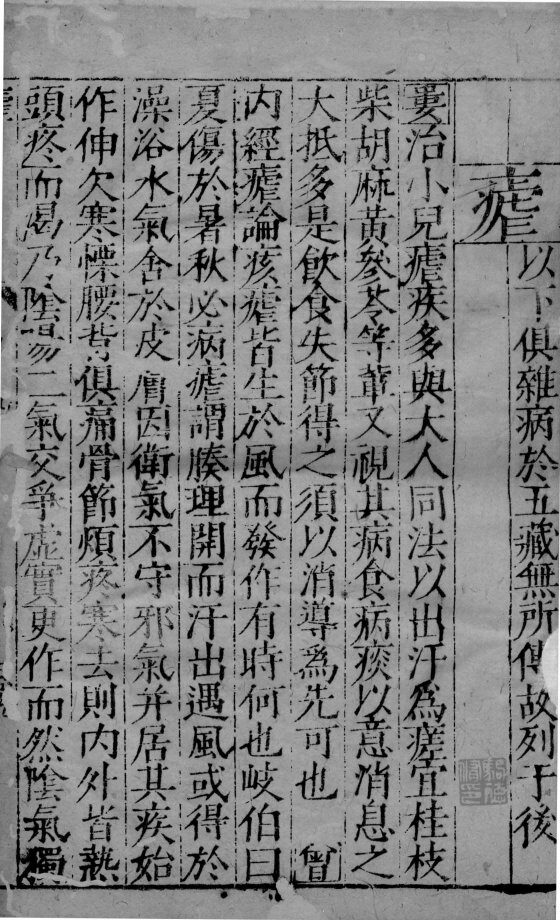 瘧
以下俱雜病於五藏無所傳故列于後
婁治小兒瘧疾多與大人同法以出汗爲瘥宜桂枝
柴胡麻黃參苓等軰又視其病食病痰以意消息之
大抵多是飲食失節得之須以消導爲先可也 曾
内經瘧論痎瘧皆生於風而發作有時何也岐伯曰
夏傷於暑秋必病瘧謂腠理開而汗出遇風或得於
澡浴水氣舍於皮膚因衛氣不守邪氣并居其疾始
作伸欠寒慄腰背俱痛骨節煩疼寒去則内外皆熱
頭疼而渴乃陰陽二氣交爭虛實更作而然陰氣獨